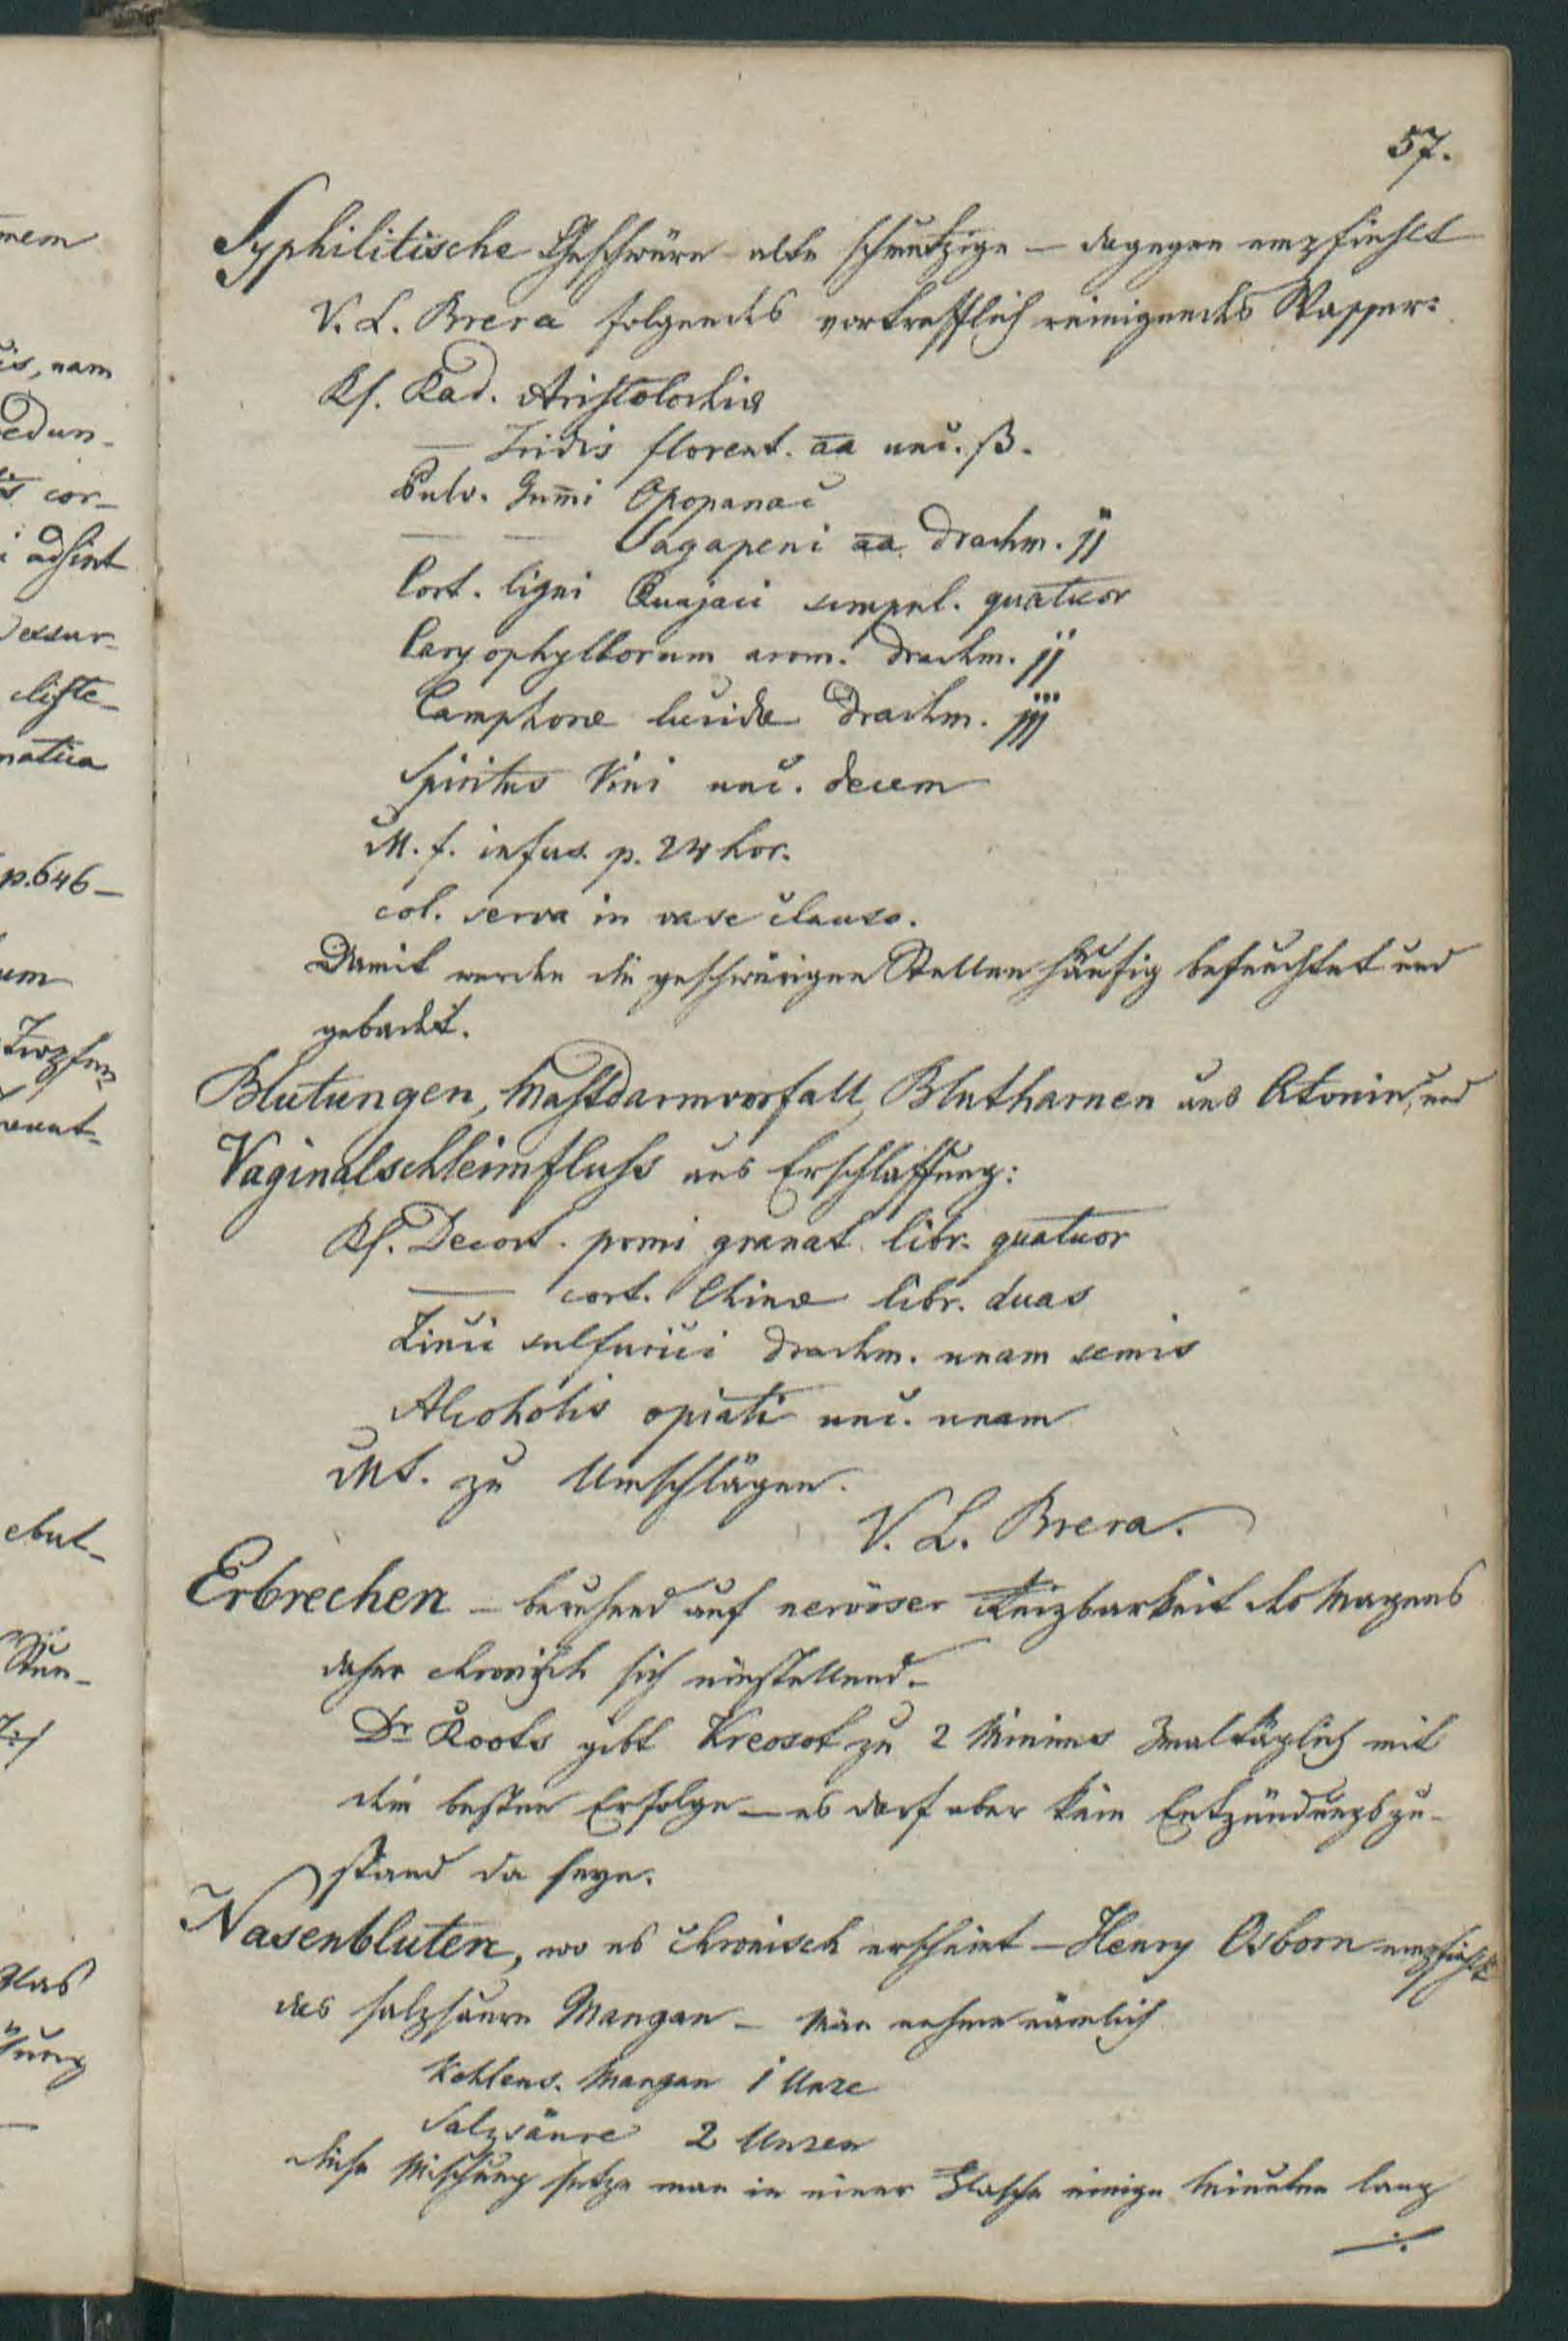 57.
Syphilitische Geschwüre alte schmutzige — dagegen empfiehlt
V. L. Brera folgendes vortrefflich reinigendes Wasser:
Rf. Rad. Aristolochiæ
— Iridis florent. aa unc. ß.
Pulv. Gum̅i Opopanac
— — Sagapeni aa drachm. jj
Cort. ligni Quajaci quatuor
Caryophyllorum arom. drachm. jj
Camphoræ lucidæ drachm. jjj
Spiritus Vini unc. decem
M. f. infus. p. 24 hor.
col. serva in vase clauso.
Damit werden die geschwürigen Stellen häufig befeuchtet und
gebadet.
Blutungen, Mastdarmvorfall, Blutharnen aus Atonie, und
Vaginalschleimfluss aus Erschlaffung:
Rf. Decoct. pomi granat. libr. quatuor
— cort. Chinæ libr. duas
Zinci sulfurici drachm. unam semis
Alcoholis opiati unc. unam
MS. zu Umschlägen.
V. L. Brera.
Erbrechen — beruhend auf nervöser Reizbarkeit des Magens
daher chronisch sich einstellend.
Dr Roots gibt Kreosot zu 2 Minims 3mal täglich mit
dem besten Erfolge — es darf aber kein Entzündungszu-
stand da seyn.
Nasenbluten, wo es chronisch erscheint — Henry Osborn empfiehlt
das salzsaure Mangan — Man nehme nämlich
Kohlens. Mangan 1 Unze
Salzsäure 2 Unzen
diese Mischung setze man in einer Flasche einige Minuten lang
./.
mem
is, nam
edun-
cor-
i adsint
liste-
matica
p. 646 —
um
Tropfen
ebul-
Stun-
das